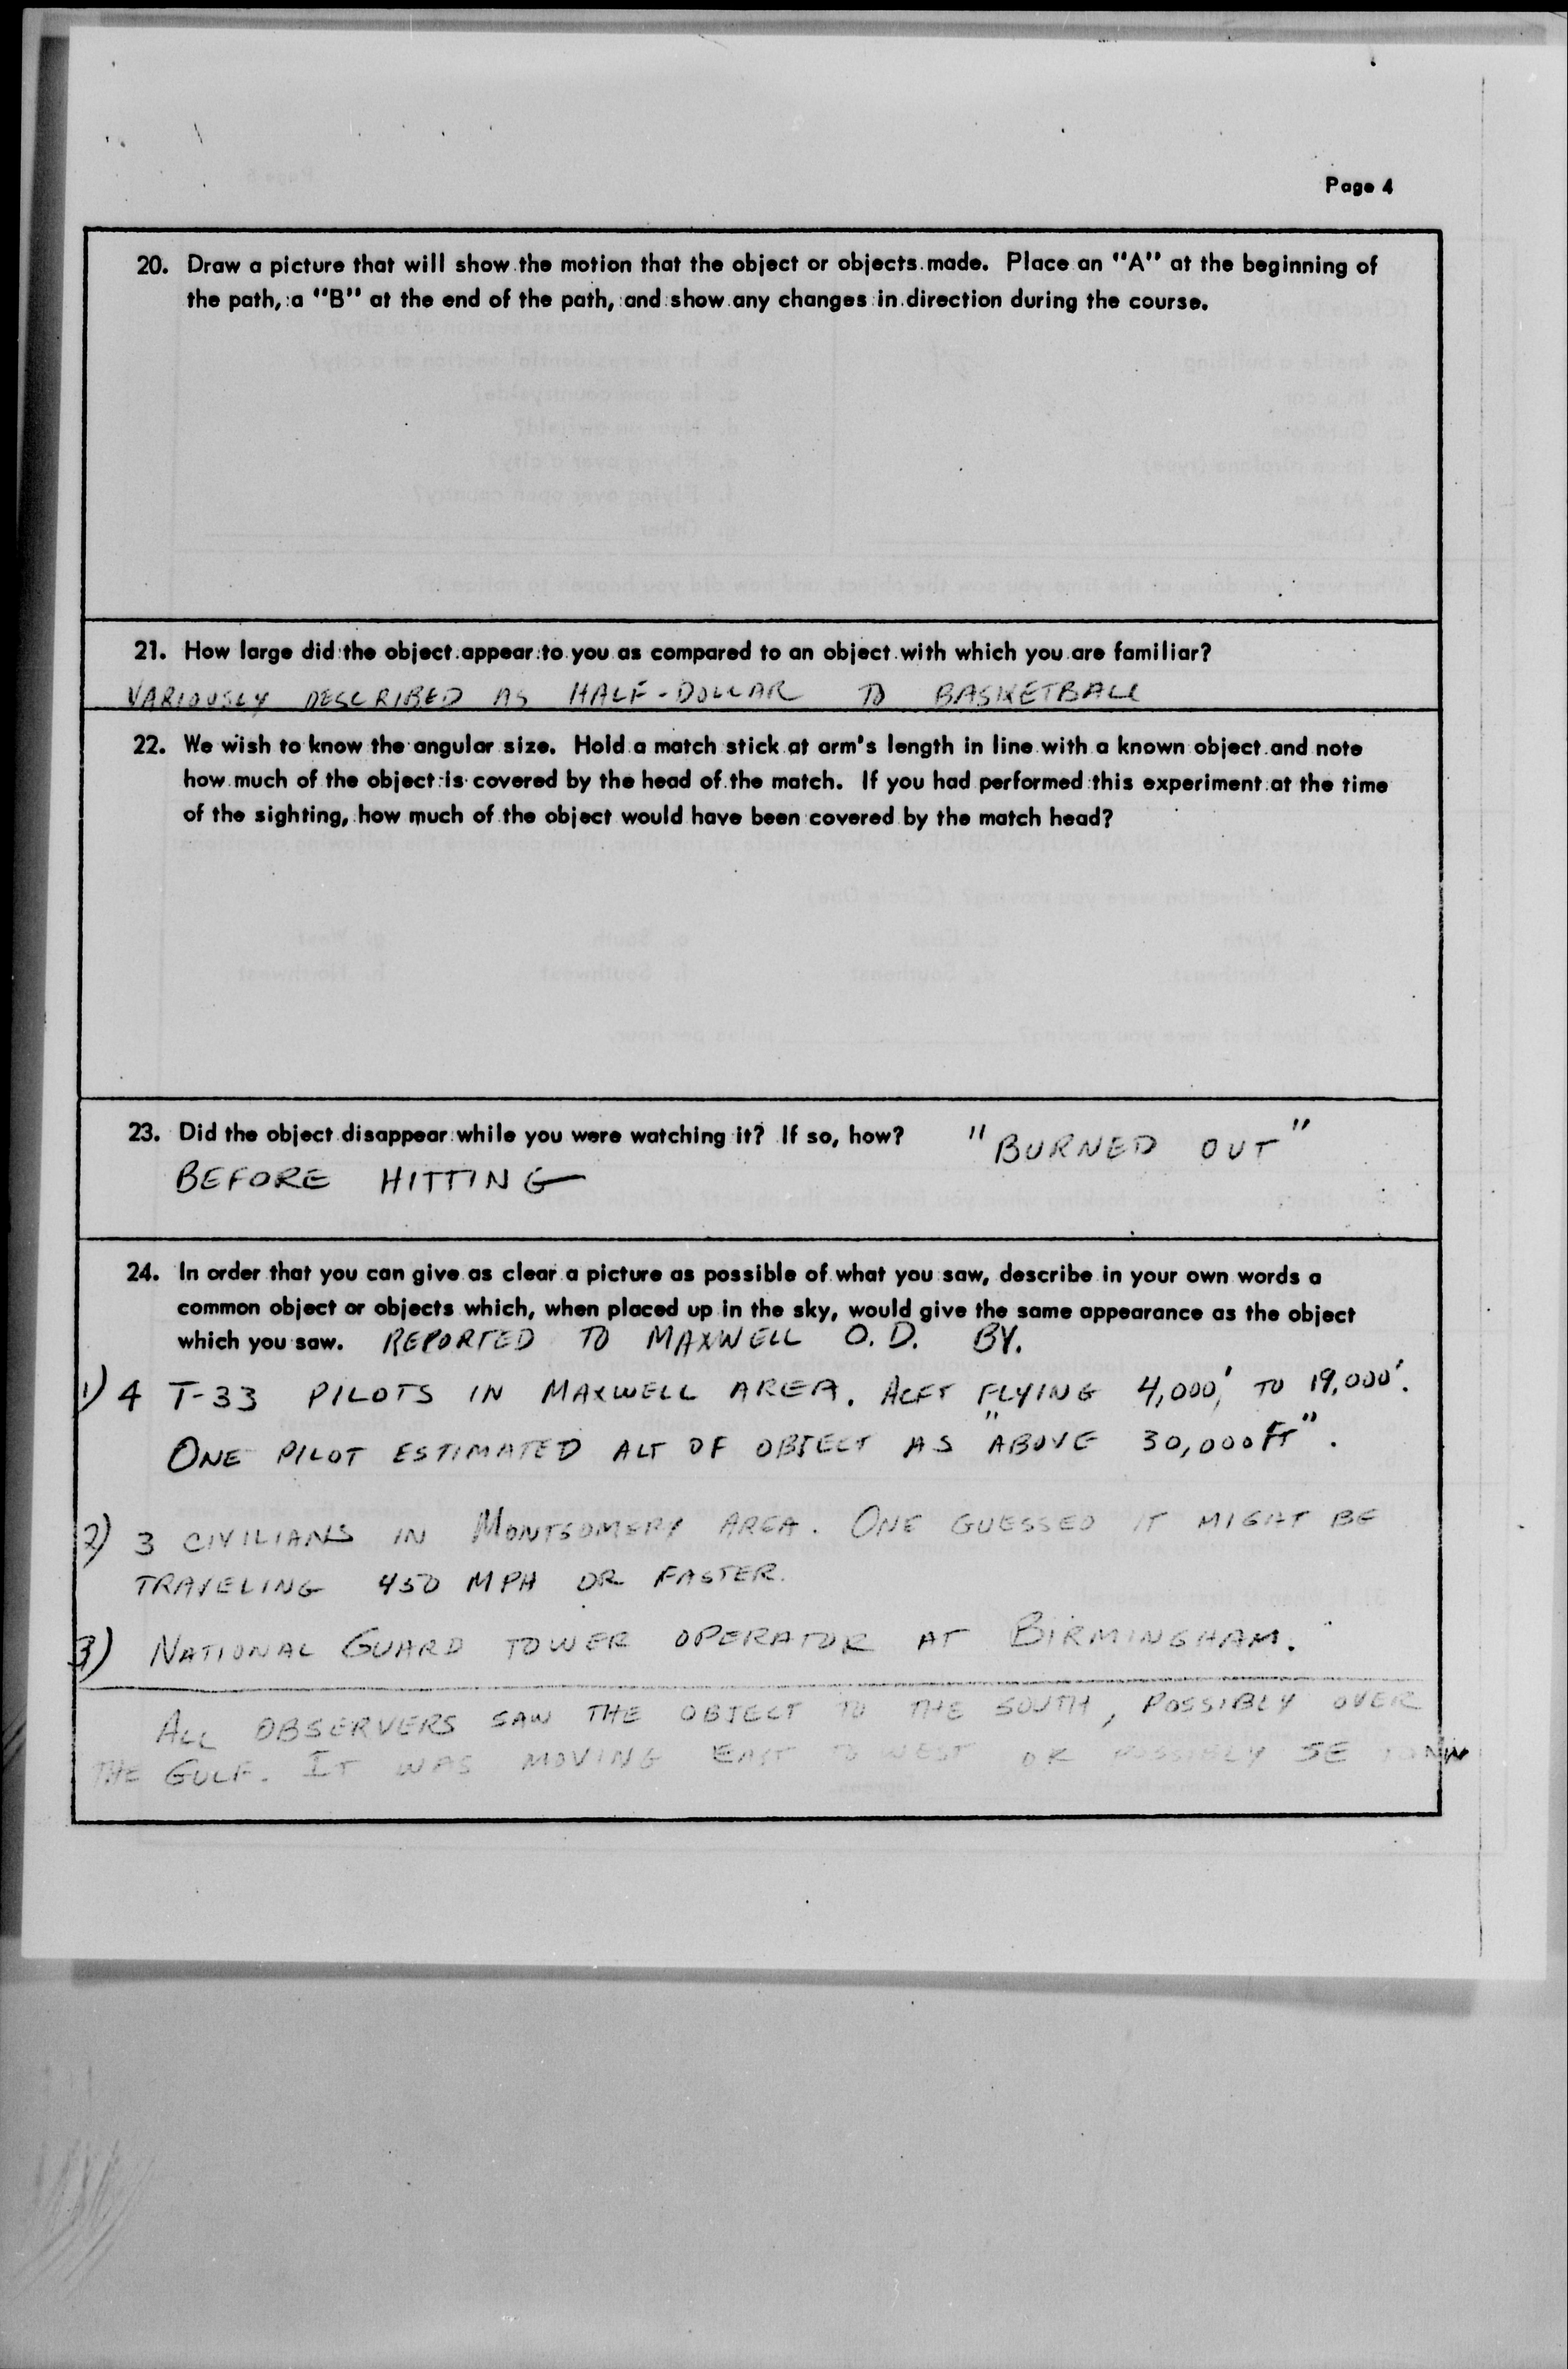 Page 4
20. Draw a picture that will show the motion that the object or objects made. Place an "A" at the beginning of
the path, a "B" at the end of the path, and show any changes in direction during the course.
21. How large did the object appear to you as compared to an object with which you are familiar?
VARIOUSLY DESCRIBED AS HALF-DOLLAR TO BASKETBALL
22. We wish to know the angular size. Hold a match stick at arm's length in line with a known object and note
how much of the object is covered by the head of the match. If you had performed this experiment at the time
of the sighting, how much of the object would have been covered by the match head?
23. Did the object disappear while you were watching it? If so, how? "BURNED OUT"
BEFORE HITTING
24. In order that you can give as clear a picture as possible of what you saw, describe in your own words a
common object or objects which, when placed up in the sky, would give the same appearance as the object
which you saw. REPORTED TO MAXWELL O.D. BY.
1) 4 T-33 PILOTS IN MAXWELL AREA. ACFT FLYING 4,000' TO 19,000'.
ONE PILOT ESTIMATED ALT OF OBJECT AS "ABOVE 30,000 FT".
2) 3 CIVILIANS IN MONTGOMERY AREA. ONE GUESSED IT MIGHT BE
TRAVELING 450 MPH OR FASTER.
3) NATIONAL GUARD TOWER OPERATOR AT BIRMINGHAM.
ALL OBSERVERS SAW THE OBJECT TO THE SOUTH, POSSIBLY OVER
THE GULF. IT WAS MOVING EAST TO WEST OR POSSIBLY SE TO NW